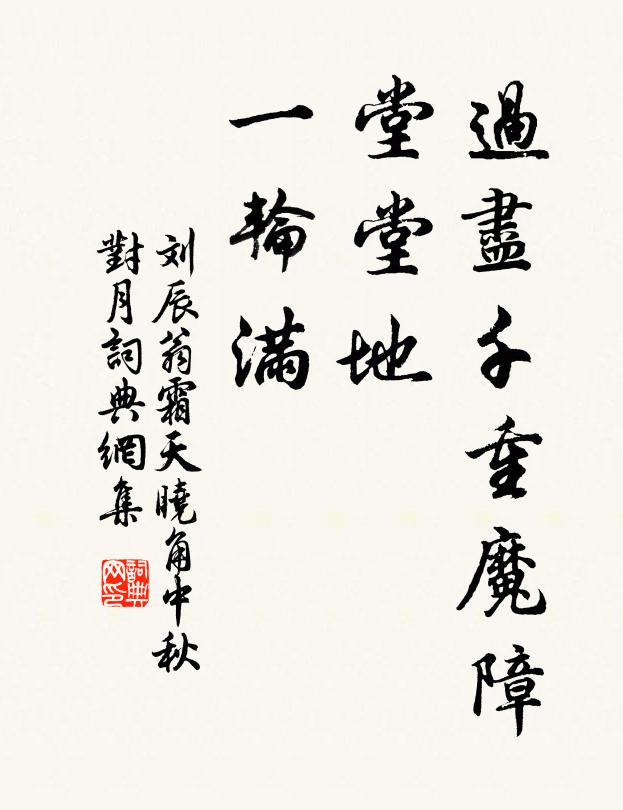 過盡千重魔障
堂堂地
一輪滿
刘辰翁霜天曉角中秋
對月詞典網集
詞典网印